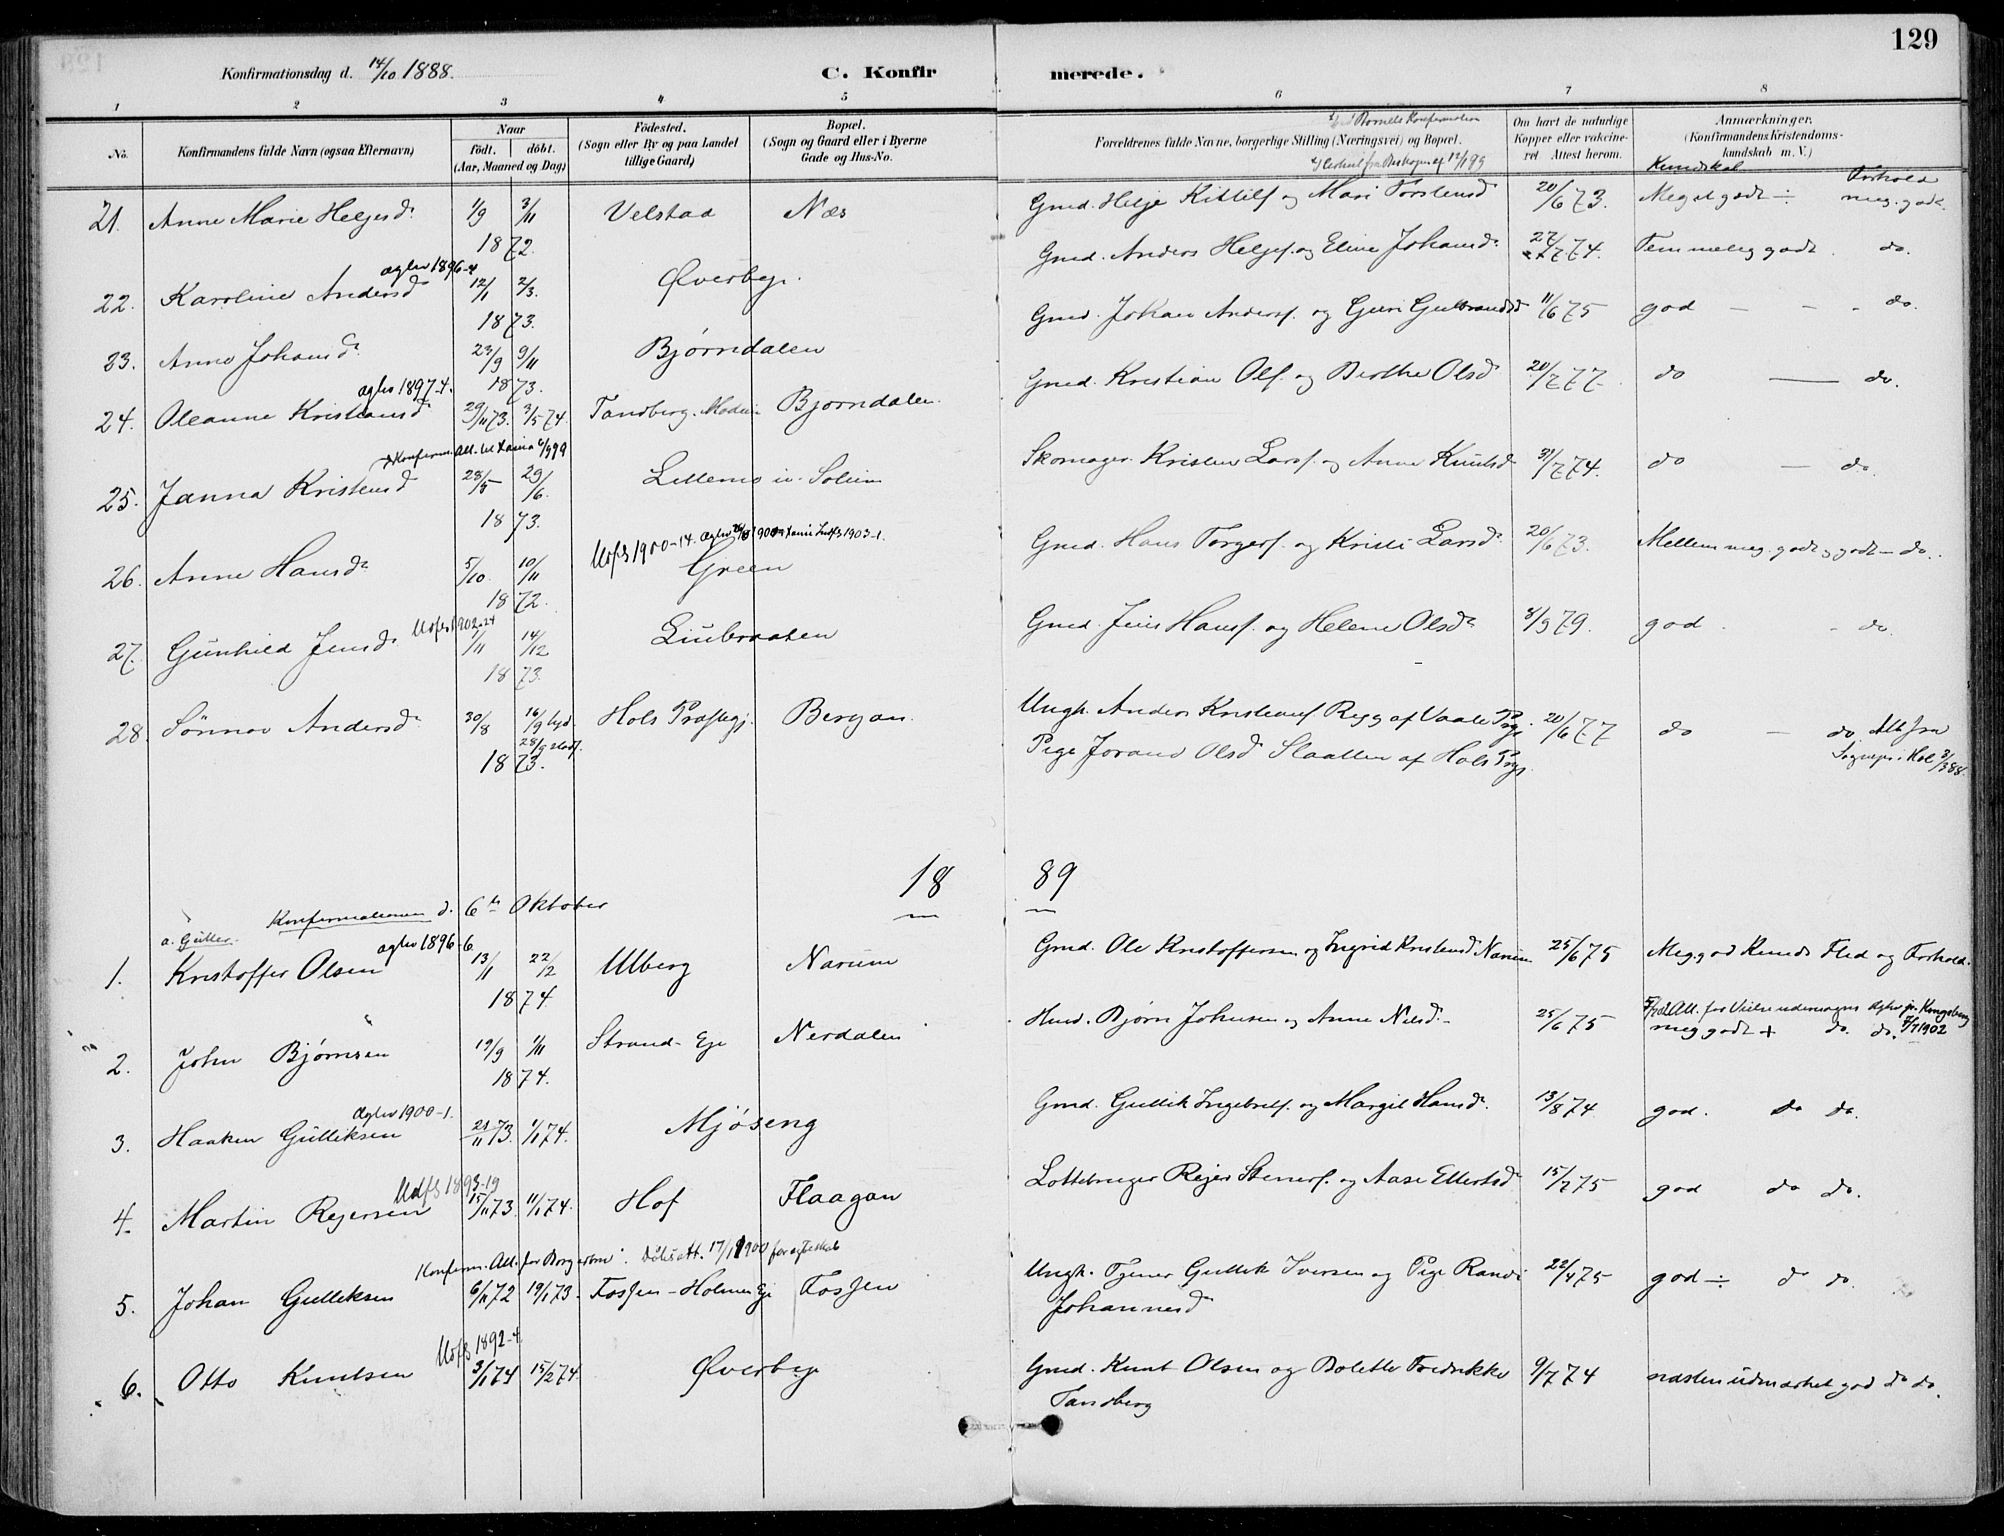 129
Konfirmationsdag d. 14/10 1888. C. Konfirmerede.
1 2 3 4 5 6 7 8
No. Konfirmandens fulde Navn (ogsaa Efternavn) Naar födt. döbt. (Aar, Maaned og Dag) Födested. (Sogn eller By og paa Landet tillige Gaard) Bopæl. (Sogn og Gaard eller i Byerne Gade og Hus-No. Forældrenes fulde Navne, borgerlige Stilling (Næringsvei) og Bopæl. Om havt de naturlige Kopper eller vakcineret Attest herom. Anmærkninger. (Konfirmandens Kristendomskundskab m. V.)
Kundskab Forhold
21. Anne Marie Helgesd. 1/9 3/11 1872. Velstad Næs Gmd. Helge Kittilf og Mari Torstensd 20/6 73. Meget godt ÷ meg. godt.
aglv 1896-4
22. Karoline Andersd 12/1 2/3. 1873. Øverby. Gmd. Anders Helgef. og Eline Johansd. 27/7 74. Temmelig godt. do.
23. Anne Johansd. 23/9 9/11 1873. Bjørndalen Gmd. Johan Andersf. og Guri Gulbrandsd 11/6 75 god - - do.
aglv 1897-4.
24. Oleanne Kristiansd 29/11 73. 3/5 74. Tandberg. Modum Bjørndalen. Gmd. Kristian Olf. og Berthe Olsd. 20/7 77. do — do.
25. Janna Kristensd 28/5 29/6. 1873. Lillemo u. Solum Skomager Kristen Larsf. og Anne Knutsd 31/7 74. do - do.
Udfl 1900-14.
26. Anne Hansd. 5/10. 10/11 1872. Green Gmd. Hans Torgersf. og Kristi Larsd. 20/6 73. Mellem meg. godt og godt - do.
27. Gunhild Jensd. 1/11 14/12 1873. Liubraaten Gmd. Jens Hansf. og Helene Olsd. 8/9 79. god. - do.
28. Sønnov Andersd. 30/8 16/9 hjd. 28/9 stadf. 1873. Hols Præstegj. Bergan. Ungk. Anders Kristiansf Rygg af Vaale Pgj. 20/6 77 do - do. Att fra
Pige Jorand Olsd. Slaatten af Hols Pgj. Sognepr. i Hol 3/3 88.
18 89
Konfirmationen d. 6te Oktober
a. Gutter. aglv 1896-6
1. Kristoffer Olsen 13/11 22/12 1874. Ulberg Narum Gmd. Ole Kristoffersen og Ingrid Kristensd Narum 25/6 75 Meg. god Kunds. Flid og Forhold.
2. John Bjørnsen 19/9 1/11 1874. Strand-Eje Nerdalen Husd. Bjørn Johnsen og Anne Nilsd.- 25/6 75 meg godt + do. do.
aglv 1900-1.
3. Haaken Gulliksen 21/11 73. 1/1 74. Mjøseng Gmd. Gullik Ingebretf. og Margit Hansd. 13/8 74 god. do do.
Udfl 1893-19
4. Martin Rejersen 15/11 73. 11/1 74. Hof Flaagan Lottebruger Rejer Stenerf. og Aase Ellertsd. 15/7 75 god do do.
Konfirm. Att. for Borgerbrev. Dåbsatt. 17/1 1900 for ægteskab
5. Johan Gulliksen 6/11 72 19/1 73. Fossen-Holmen Eje Fossen Ungk. Tjener Gullik Iversen og Pige Randi 22/4 75 god ÷ do do.
Johannesd.
Udfl 1892-4
6. Otto Knutsen 3/1 74 15/2 74. Øverby Gmd. Knut Olsen og Bolette Fredrikke 9/7 74 næsten udmærket god do do.
Tandberg